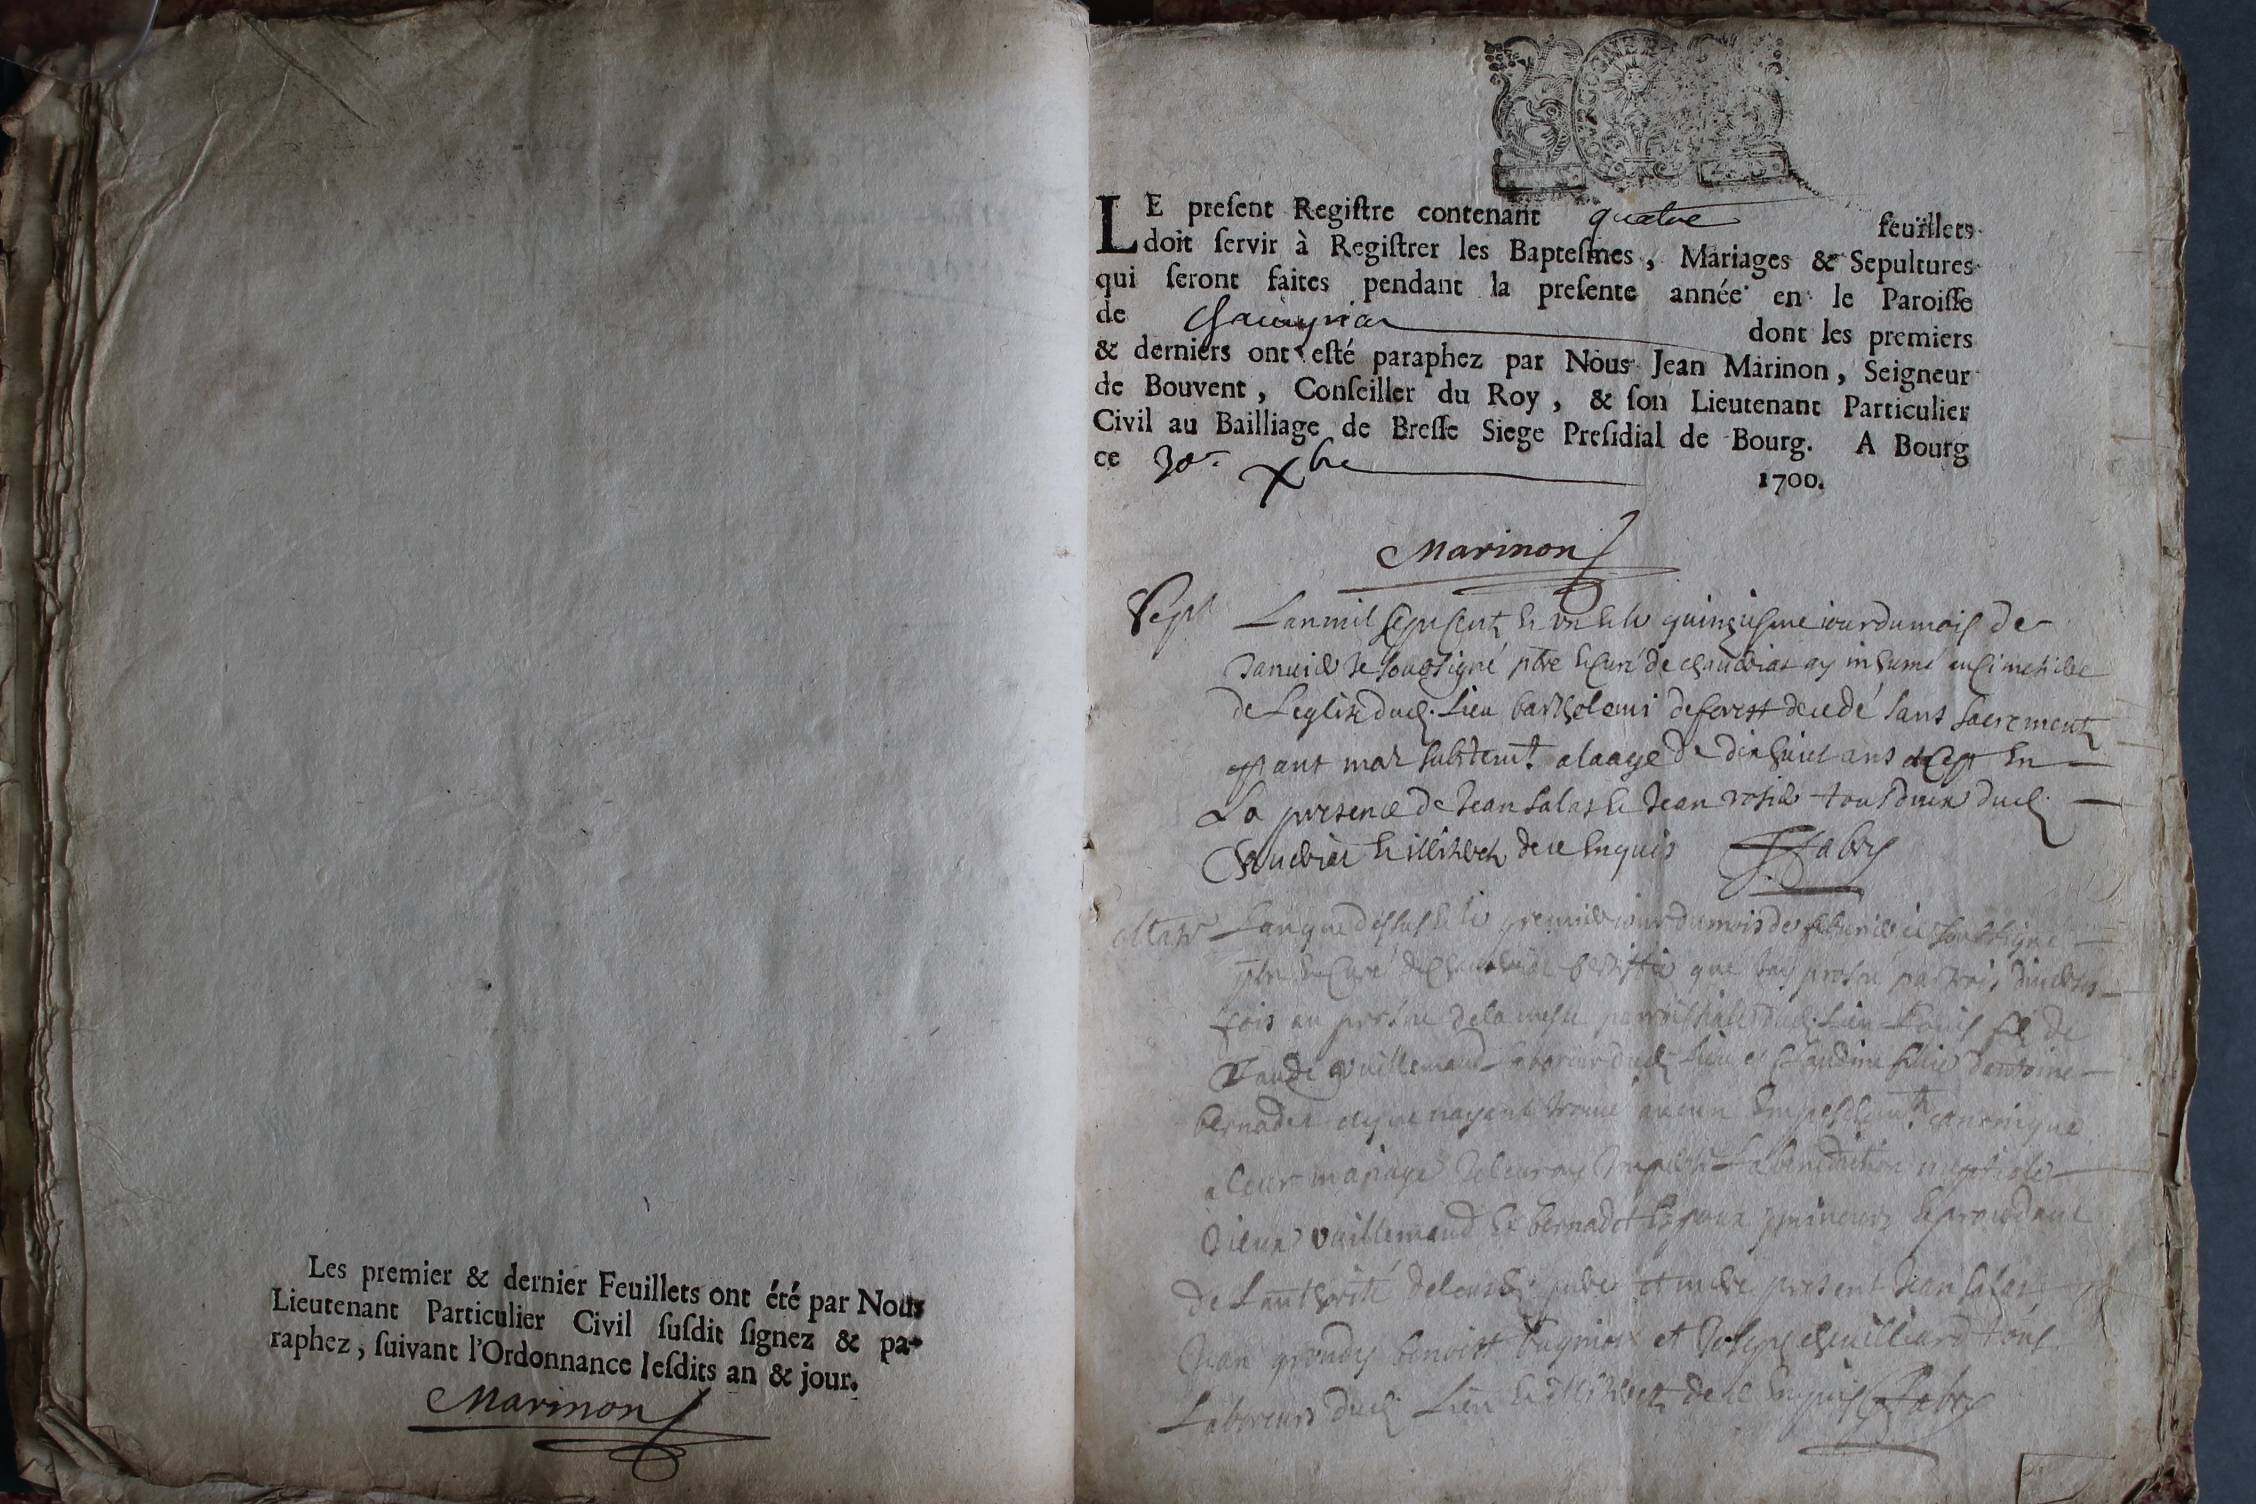 Les premier & dernier Feuillets ont été par Nous
Lieutenant Particulier Civil ſuſdit ſignez & pa-
raphez, ſuivant l'Ordonnance leſdits an & jour.
Marinon
LE preſent Regiſtre contenant quatre feuillets
doit ſervir à Regiſtrer les Bapteſmes, Mariages & Sepultures
qui ſeront faites pendant la preſente année en le Paroiſſe
de dont les premiers
& derniers ont eſté paraphez par Nous Jean Marinon, Seigneur
de Bouvent, Conſeiller du Roy, & ſon Lieutenant Particulier
Civil au Bailliage de Breſſe Siege Preſidial de Bourg. A Bourg
ce 30e Xbre 1700.
Marinon
Sept Lan mil sept cent et un et le quinziesme iour du mois de
Ianvier Ie soubsigné ptre et curé de ay inhumé au cimetiere
de Leglise dud. Lieu bartholemi deforest decedé sans sacrement
mor subitemt a laage de dix huict ans en
La presence de Jean salas et Jean rosier tous deux dud.
et illiteres de ce enquis Fabry
Lan que dessus et le premier iour du mois de febvrier ie soubsigné
ptre et curé de certiffie que iay par trois diverses
fois au prosne de la messe parroissiale dud. Lieu Louis fils de
Claude vuillemaud dud. Lieu et Claudine fille dantoine
bernadet et ne nayant trouvé aucun empeschemt canonique
a leur mariage Ie leur ay La benediction nuptiale
vuillemaud et bernadet mineurs et procedant
de Lauthorité de leurs pere et mere present Jean salas
Jean benoist et Joseph tous
Laboureurs dud. Lieu et illiteres de ce enquis Fabry